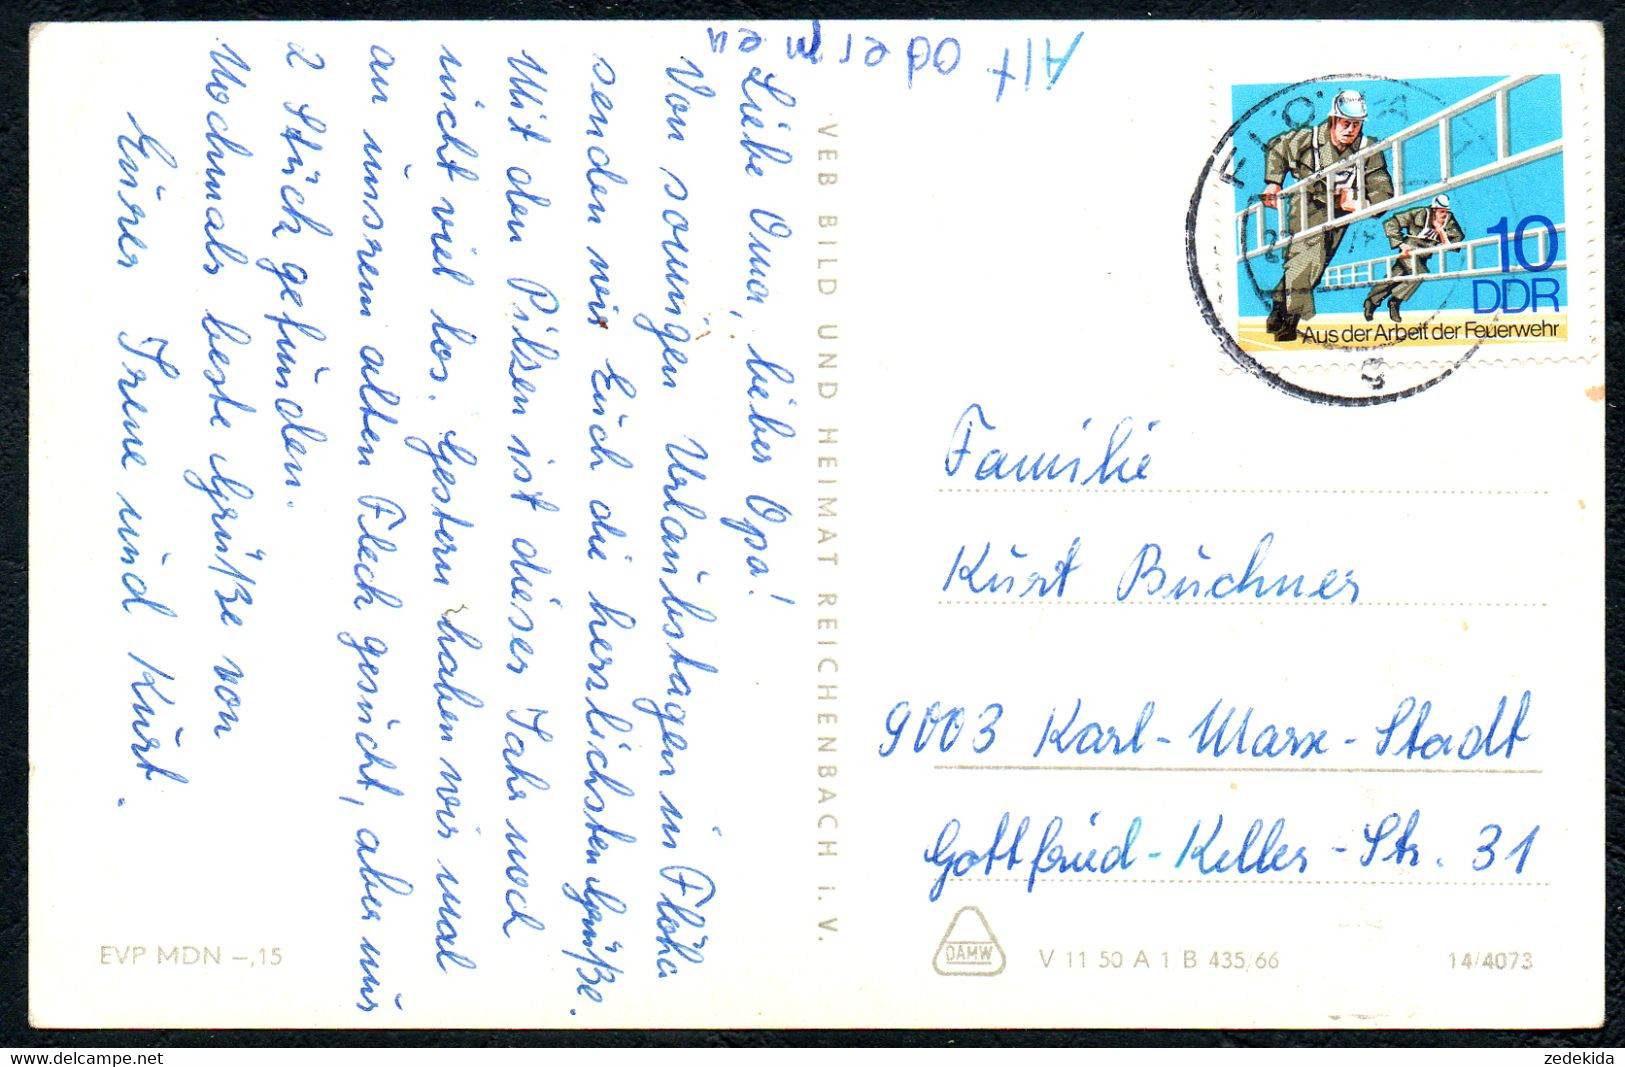 Alt oder neu
Liebe Oma, lieber Opa!
Von sonnigen Urlaubstagen in Flöha
senden wir Euch die herzlichsten Grüße.
Mit den Pilzen ist dieses Jahr noch
nicht viel los. Gestern haben wir mal
an unsrem alten Fleck gesucht, aber nur
2 Stück gefunden.
Nochmals beste Grüße von
Eurer Irene und Kurt.
EVP MDN –,15
VEB BILD UND HEIMAT REICHENBACH i. V.
10
DDR
Aus der Arbeit der Feuerwehr
Familie
Kurt Buchner
9003 Karl-Marx-Stadt
Gottfried-Keller-Str. 31
DAMW
V 11 50 A 1 B 435/66
14/4073
zedekida